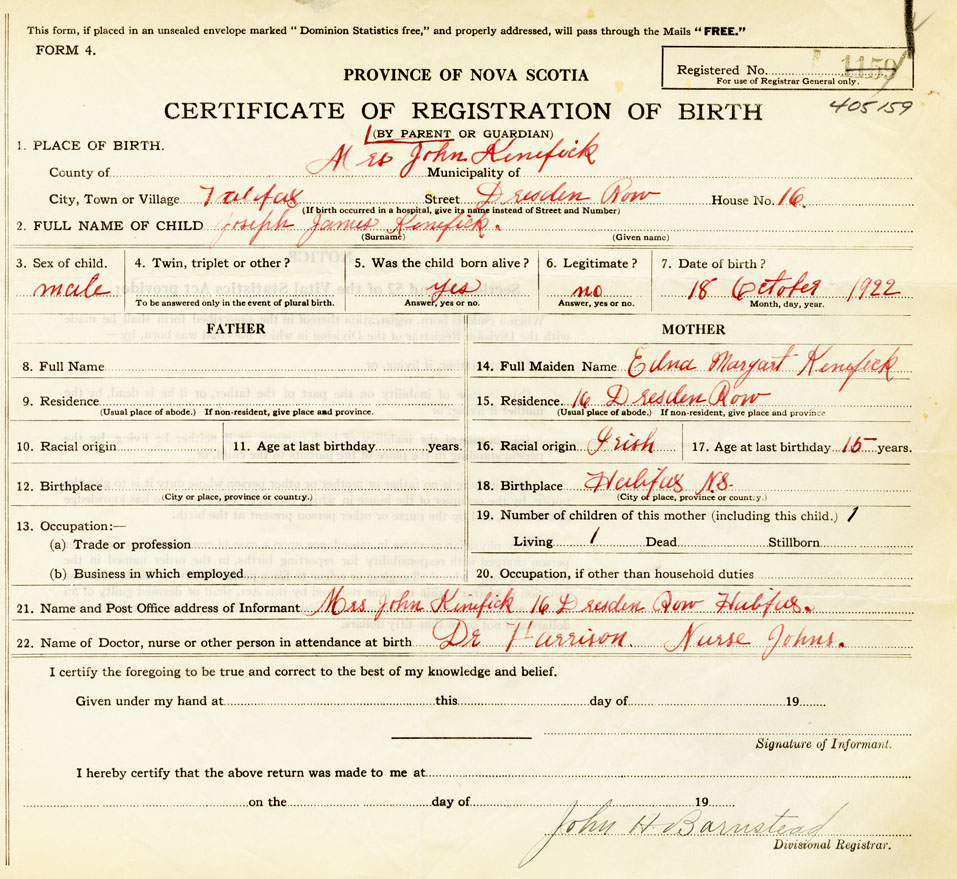 This form, if placed in an unsealed envelope marked "Dominion Statistics free," and properly addressed, will pass through the Mails "FREE."
FORM 4.
PROVINCE OF NOVA SCOTIA
Registered No. 1159
For use of Registrar General only.
405159
CERTIFICATE OF REGISTRATION OF BIRTH
(BY PARENT OR GUARDIAN)
1. PLACE OF BIRTH. Mrs John Kenefick
County of Municipality of
City, Town or Village Halifax Street Dresden Row House No. 16.
(If birth occurred in a hospital, give its name instead of Street and Number)
2. FULL NAME OF CHILD Joseph James Kenefick.
(Surname) (Given name)
3. Sex of child. 4. Twin, triplet or other? 5. Was the child born alive? 6. Legitimate? 7. Date of birth?
male yes no 18 October 1922
To be answered only in the event of plural birth. Answer, yes or no. Answer, yes or no. Month, day, year.
FATHER MOTHER
8. Full Name 14. Full Maiden Name Edna Margart Kenefick
9. Residence 15. Residence. 16 Dresden Row
(Usual place of abode.) If non-resident, give place and province. (Usual place of abode.) If non-resident, give place and province
10. Racial origin 11. Age at last birthday years. 16. Racial origin Irish 17. Age at last birthday 15 years.
12. Birthplace 18. Birthplace Halifax NS.
(City or place, province or country.) (City or place, province or country.)
13. Occupation:— 19. Number of children of this mother (including this child.) 1
(a) Trade or profession Living 1 Dead Stillborn
(b) Business in which employed 20. Occupation, if other than household duties
21. Name and Post Office address of Informant Mrs John Kenefick 16 Dresden Row Halifax.
22. Name of Doctor, nurse or other person in attendance at birth Dr Harrison. Nurse Johns.
I certify the foregoing to be true and correct to the best of my knowledge and belief.
Given under my hand at this day of 19
Signature of Informant.
I hereby certify that the above return was made to me at
on the day of 19
John H. Barnstead
Divisional Registrar.